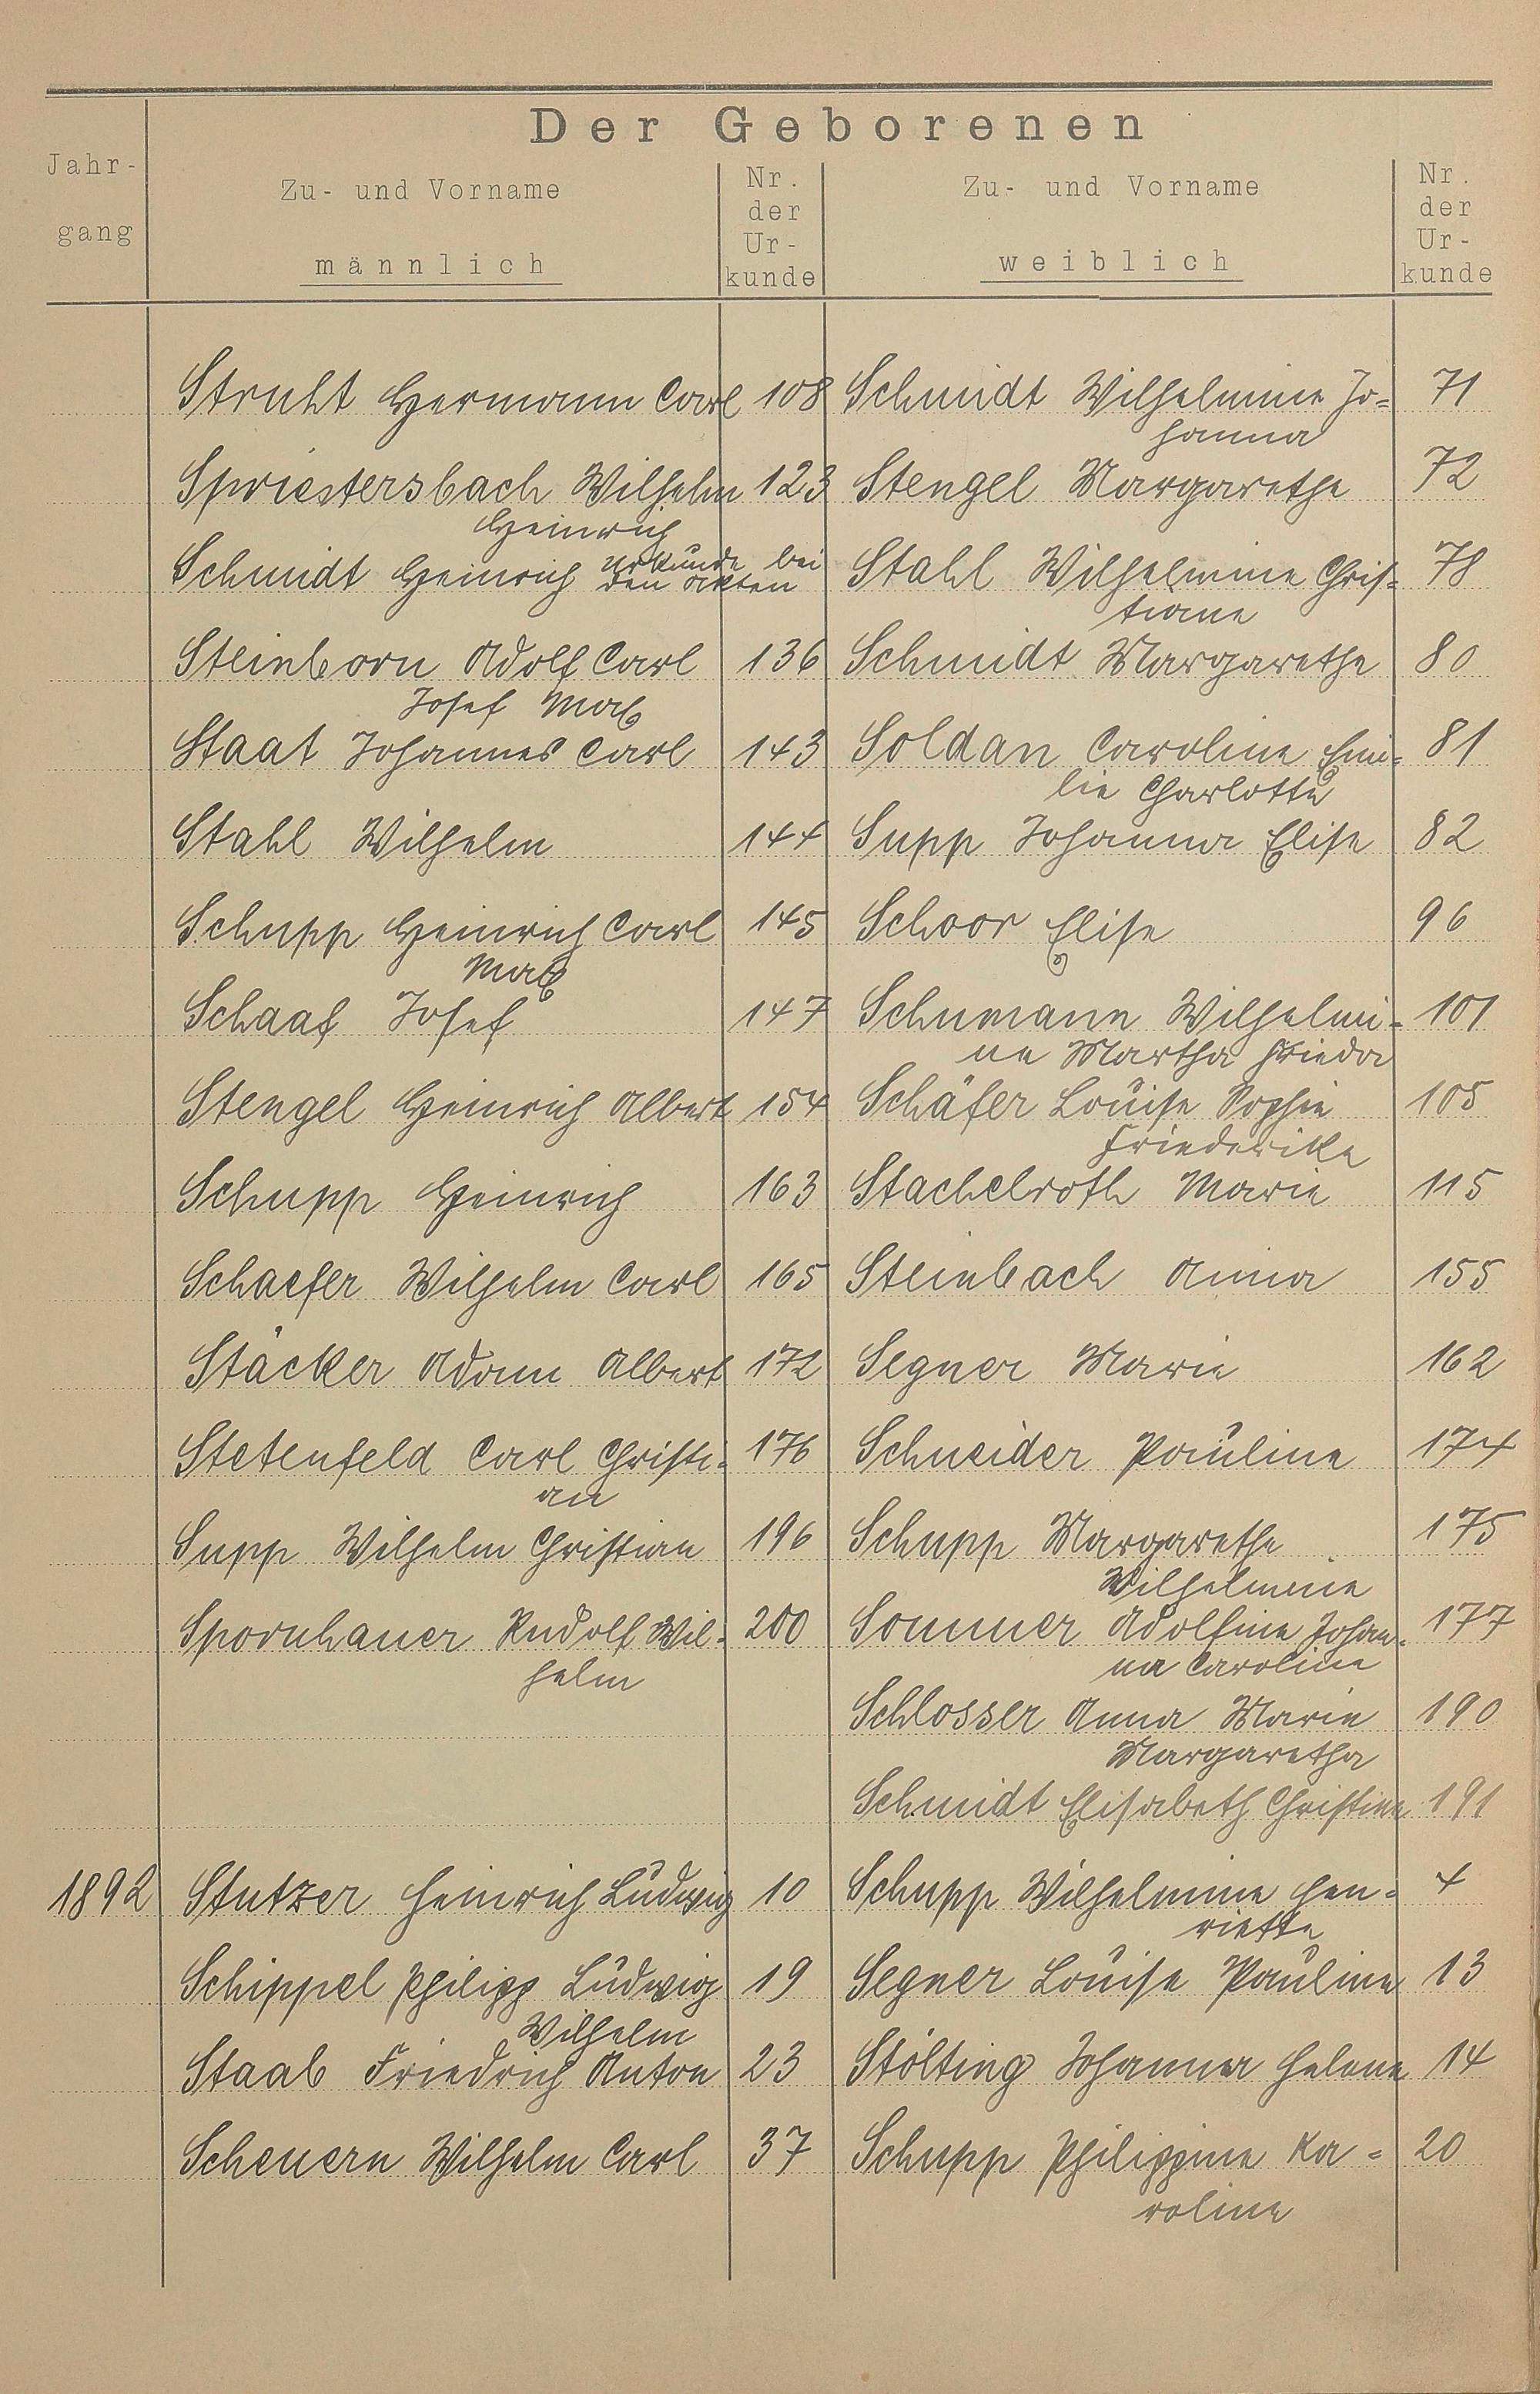 Der Geborenen
Jahr-
gang
Zu- und Vorname
männlich
Nr.
der
Ur-
kunde
Zu- und Vorname
weiblich
Nr.
der
Ur-
kunde
Struht Hermann Carl 108 Schmidt Wilhelmine Jo= 71
hanna
Spriestersbach Wilhelm 123 Stengel Margarethe 72
Heinrich
Schmidt Heinrich Urkunde bei den Akten Stahl Wilhelmine Chris= 78
tiane
Steinborn Adolf Carl 136 Schmidt Margarethe 80
Josef Max
Staat Johannes Carl 143 Soldan Caroline Emi= 81
lie Charlotte
Stahl Wilhelm 144 Supp Johanna Elise 82
Schupp Heinrich Carl 145 Schoor Elise 96
Max
Schaaf Josef 147 Schumann Wilhelmi= 101
ne Martha Frieda
Stengel Heinrich Albert 154 Schäfer Louise Sophie 105
Friederike
Schupp Heinrich 163 Stachelroth Marie 115
Schaefer Wilhelm Carl 165 Steinbach Anna 155
Stäcker Adam Albert 172 Segner Marie 162
Stetenfeld Carl Christi= 176 Schneider Pauline 174
an
Supp Wilhelm Christian 196 Schupp Margarethe 175
Wilhelmine
Spornhauer Rudolf Wil= 200 Sommer Adolfine Johan= 177
helm na Caroline
Schlosser Anna Marie 190
Margaretha
Schmidt Elisabeth Christine 191
1892 Stutzer Heinrich Ludwig 10 Schupp Wilhelmine Hen= 4
riette
Schippel Philipp Ludwig 19 Segner Louise Pauline 13
Wilhelm
Staab Friedrich Anton 23 Stölting Johanna Helene 14
Scheuern Wilhelm Carl 37 Schupp Philippine Ka= 20
roline